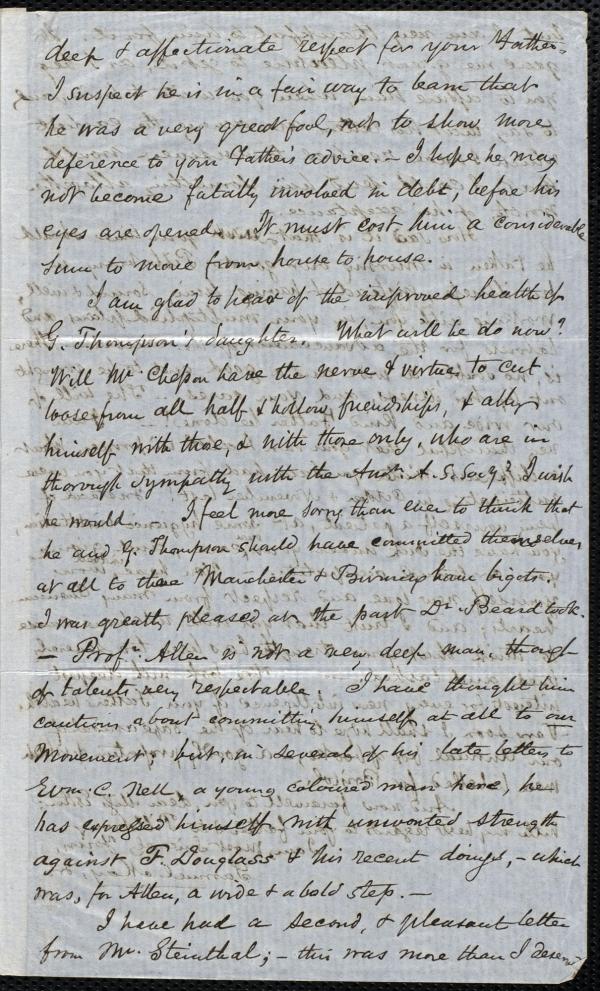 deep & affectionate respect for your Father.
I suspect he is in a fair way to learn that
he was a very great fool, not to show more
deference to your Father's advice. – I hope he may
not become fatally involved in debt, before his
eyes are opened. It must cost him a considerable
sum to move from house to house.
I am glad to hear of the improved health of
G. Thompson's daughter. What will he do now?
Will Mr. Chesson have the nerve & virtue to cut
loose from all half & hollow friendships, & ally
himself with those, & with those only, who are in
thorough sympathy with the Amn. A. S. Socy? I wish
he would. I feel more sorry than ever to think that
he and G. Thompson should have committed themselves
at all to these Manchester & Birmingham bigots.
I was greatly pleased at the part Dr. Beard took.
– Profr. Allen is not a very deep man, though
of talents very respectable. I have thought him
cautious about committing himself at all to our
Movement; but, in several of his late letters to
Wm. C. Nell, a young coloured man here, he
has expressed himself with unwonted strength
against F. Douglass & his recent doings, – which
was, for Allen, a wide & a bold step. –
I have had a second, & pleasant letter
from Mr. Steinthal; – this was more than I deserve